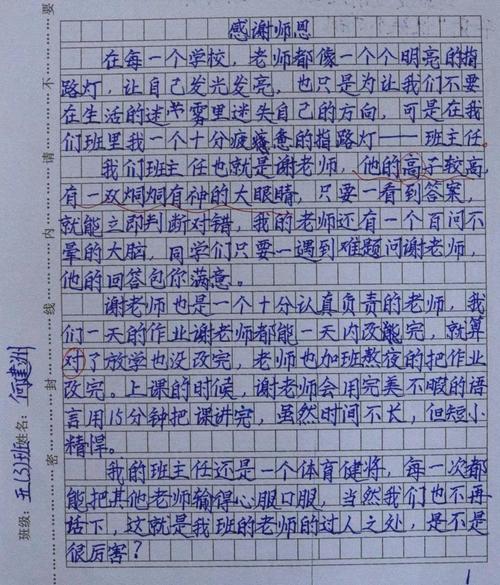 感谢师恩
在每一个学校，老师都像一个个明亮的指
路灯，让自己发光发亮，也只是为让我们不要
在生活的迷雾里迷失自己的方向，可是在我
们班里我一个十分疲惫的指路灯——班主任
我们班主任也就是谢老师，他的高子较高，
有一双炯炯有神的大眼睛，只要一看到答案，
就能立即判断对错，我的老师还有一个百问不
晕的大脑，同学们只要一遇到难题问谢老师，
他的回答包你满意。
谢老师也是一个十分认真负责的老师，我
们一天的作业谢老师都能一天内改完，就算
对了放学也没改完，老师也加班熬夜的把作业
改完。上课的时候，谢老师会用完美不暇的语
言用15分钟把课讲完，虽然时间不长，但短小
精悍。
我的班主任还是一个体育健将，每一次都
能把其他老师输得心服口服，当然我们也不再
话下，这就是我班的老师的过人之处，是不是
很厉害？
1
班级：五(3)班 姓名：何建洲
密 封 线 内 请 不 要